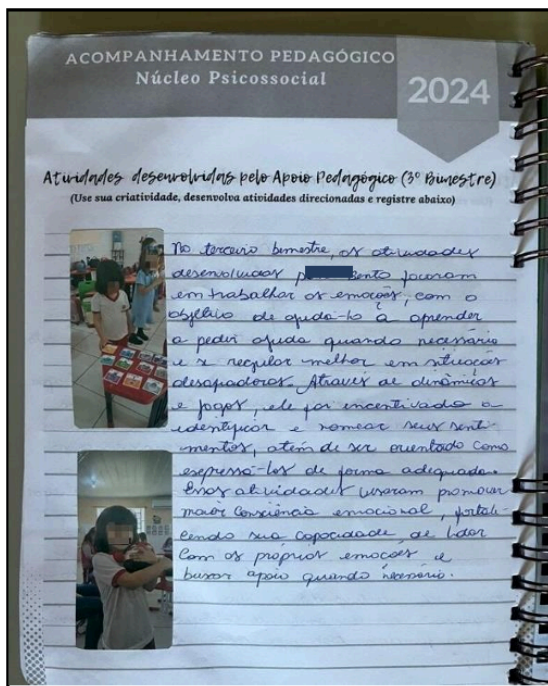 ACOMPANHAMENTO PEDAGÓGICO
Núcleo Psicossocial
2024
Atividades desenvolvidas pelo Apoio Pedagógico (3º Bimestre)
(Use sua criatividade, desenvolva atividades direcionadas e registre abaixo)
No terceiro bimestre, as atividades
desenvolvidas focaram
em trabalhar as emoções, com o
objetivo de ajudá-lo à aprender
a pedir ajuda quando necessário
e se regular melhor em situações
desafiadoras. Através de dinâmicas
e jogos, ele foi incentivado a
identificar e nomear seus senti-
mentos, além de ser orientado como
expressá-los de forma adequada.
Essas atividades visaram promover
maior consciência emocional, fortale-
cendo sua capacidade de lidar
com as próprias emoções e
buscar apoio quando necessário.